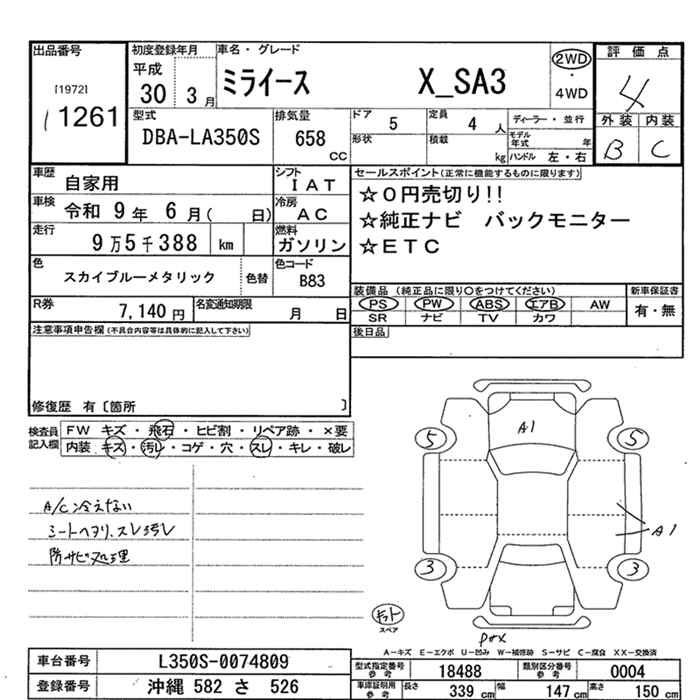 出品番号 初度登録年月 車名・グレード 評価点
[1972] 平成 ミライース X_SA3 2WD 4
1261 30 3月 ・ 4WD
型式 排気量 ドア 5 定員 4人 ディーラー・並行 外装 内装
DBA-LA350S 658 cc 形状 積載 kg モデル年式 年 B C
ハンドル 左・右
車歴 自家用 シフト IAT セールスポイント(正常に機能するものに限ります)
車検 令和 9年 6月( 日) 冷房 AC ☆0円売切り!!
走行 9万5千388 km 燃料 ガソリン ☆純正ナビ バックモニター
☆ETC
色 スカイブルーメタリック 色替 色コード B83
装備品 (純正品に限り○をつけてください) 新車保証書
R券 7,140円 名変通知期限 月 日 PS PW ABS エアB AW 有・無
SR ナビ TV カワ
注意事項申告欄(不具合内容等は具体的に記入して下さい) 後日品
修復歴 有〔箇所 〕
検査員記入欄 FW キズ・飛石・ヒビ割・リペア跡・×要
内装 キズ・汚レ・コゲ・穴・スレ・キレ・破レ
A1
5 5
A/C冷えない
シートヘタリ、スレ汚レ A1
防サビ処理
3 3
キット
スペア
A-キズ E-エクボ U-凹み W-補修跡 S-サビ C-腐食 XX-交換済
車台番号 L350S-0074809 型式指定番号 参考 18488 類別区分番号 参考 0004
登録番号 沖縄 582 さ 526 車庫証明用 参考 長さ 339 cm 幅 147 cm 高さ 150 cm